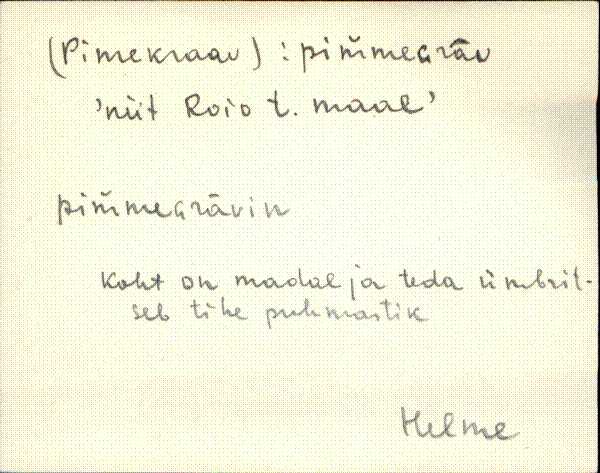 (Pimekraav) : pim̆megrāv
'niit Roio t. maal'
pim̆megrāvin
koht on madal ja teda ümbrit-
seb tihe puhmastik
Helme